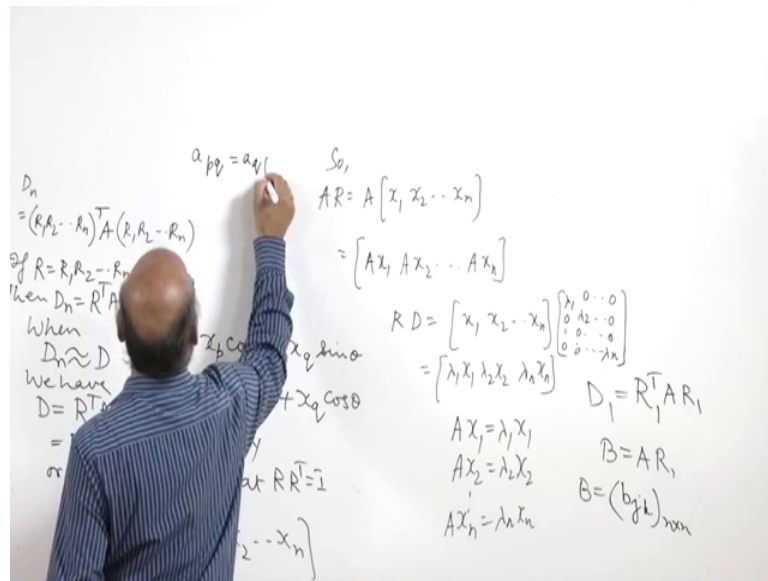 D_n
= (R_1 R_2 ... R_n)^T A (R_1 R_2 ... R_n)
If R = R_1 R_2 ... R_n
Then D_n = R^T A
When
D_n ≈ D
We have
D = R^T A
=
or
a_pq = a_q
x_p co x_q sinθ
+ x_q cosθ
at R R^T = I
x_2 ... x_n]
So,
AR = A [x_1 x_2 ... x_n]
= [Ax_1 Ax_2 ... Ax_n]
RD = [x_1 x_2 ... x_n] [λ_1 0 ... 0
0 λ_2 ... 0
0 ... 0
0 0 ... λ_n]
= [λ_1 x_1 λ_2 x_2 λ_n x_n]
Ax_1 = λ_1 x_1
Ax_2 = λ_2 x_2
Ax_n = λ_n x_n
D_1 = R_1^T A R_1
B = AR_1
B = (b_jk)_n×n